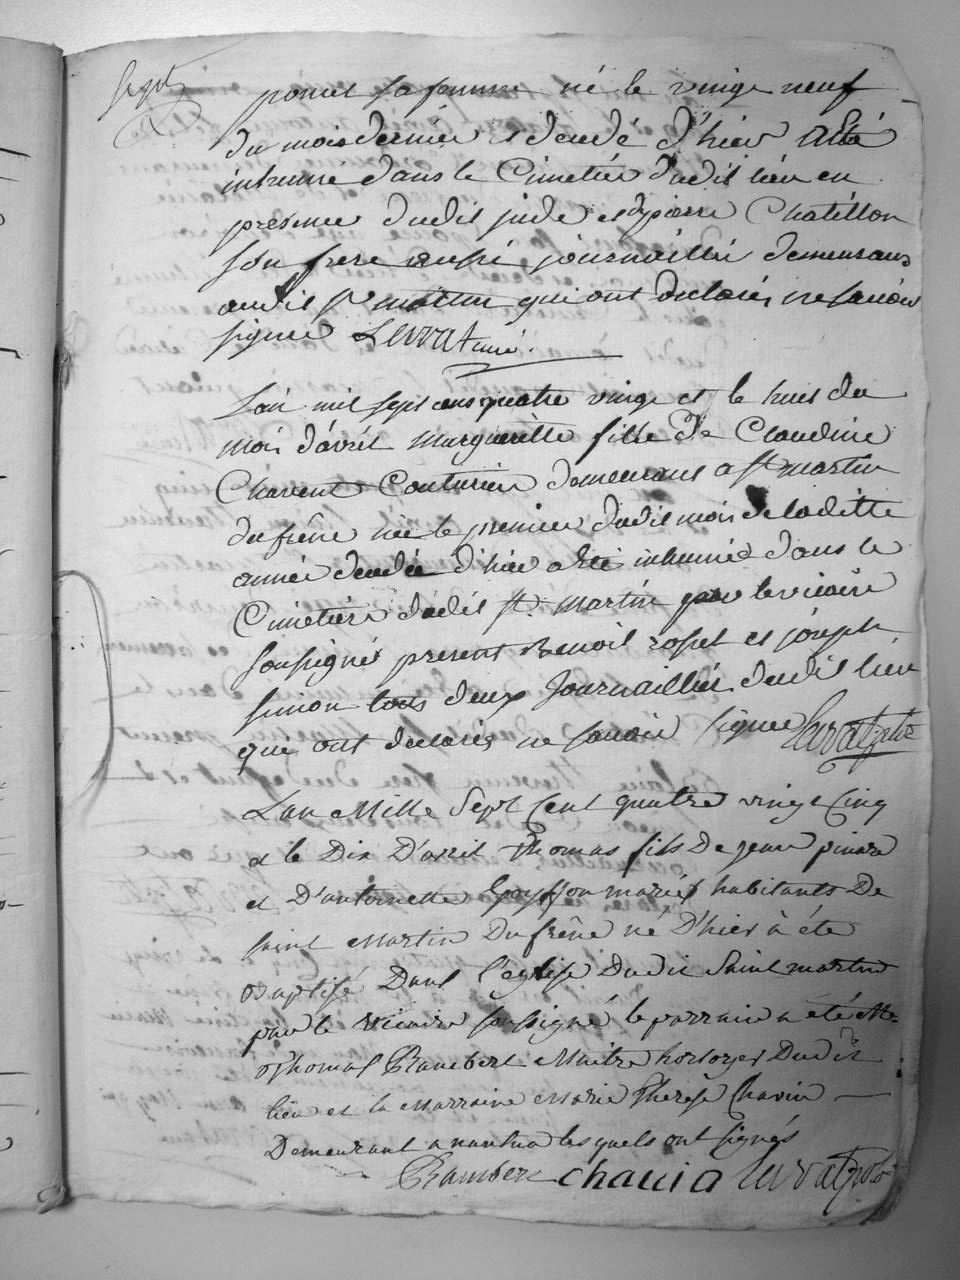 Sept
ponet sa femme né le vingt neuf
du mois dernier et décédé d'hier a été
inhumé dans le Cimetière dudit lieu en
présence dudit jude et de pierre Chatillon
son frere aussi journaillier demeurans
audit St martin qui ont déclarés ne savoir
signer Lervat curé.
L'an mil sept cens quatre vingt et le huit du
mois d'avril Margueritte fille de Claudine
Couturier demeurans a St martin
du frêne née le premier dudit mois de laditte
année décédée d'hier a été inhumée dans le
Cimetière dudit St. Martin par le vicaire
soussigné present Benoit rosset et joseph
simon tous deux Journaillier dudit lieu
qui ont déclarés ne savoir signer
L'an Mille Sept Cent quatre vingt Cinq
et le Dix D'avril Thomas fils De jean pinard
et D'antoinette mariés habitants De
saint Martin Du frêne né D'hier à été
Baptisé Dans l'église Dudit Saint martin
par le Vicaire soussigné le parrain a été Me
Thomas Rambert Maitre horloger Dudit
lieu et la Marraine Marie Thérèse Chavin
Demeurant a nantua les quels ont signés
Rambert chavin